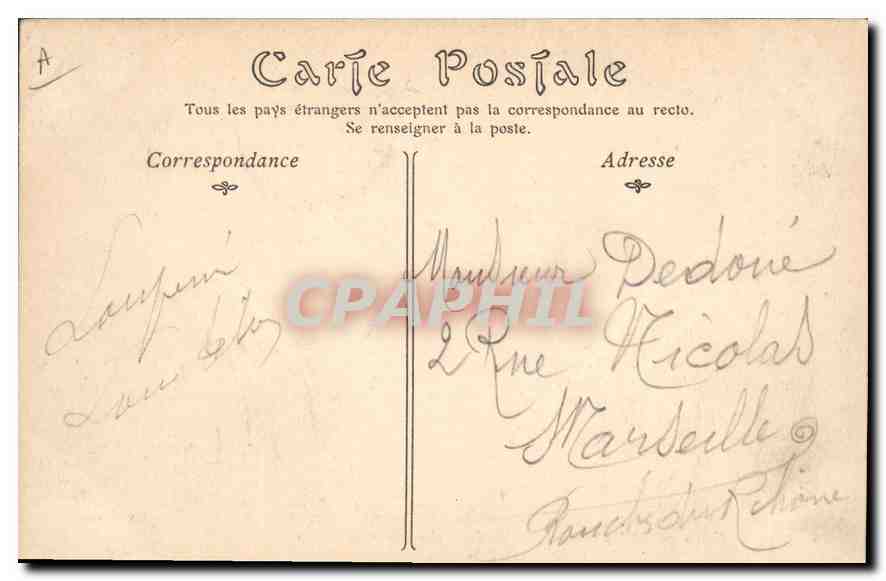 A
Carte Postale
Tous les pays étrangers n'acceptent pas la correspondance au recto.
Se renseigner à la poste.
Correspondance
Adresse
Monsieur Dedoué
2 Rue Nicolas
Marseille
Bouches du Rhône
CPAPHIL